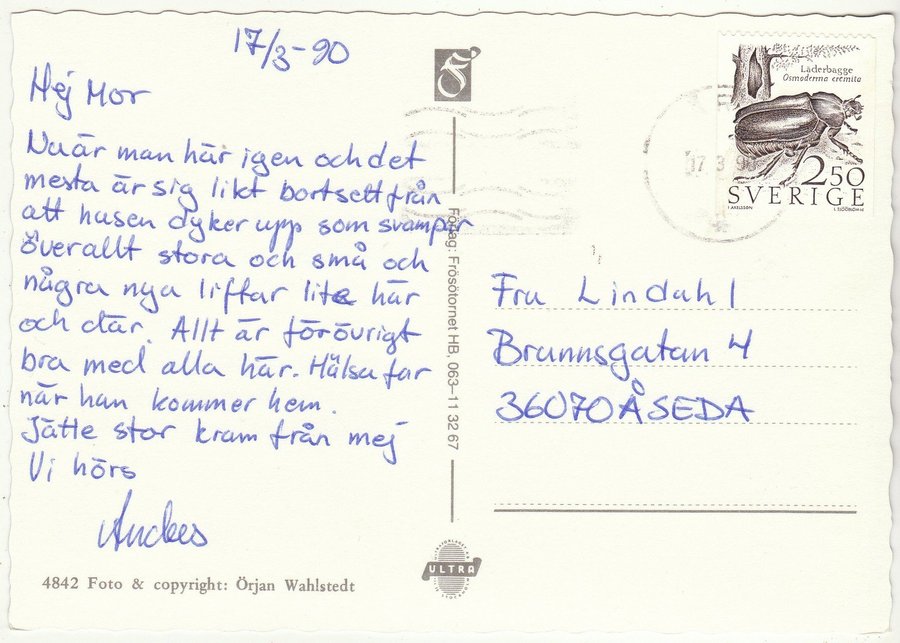 17/3-90
Hej Mor
Nu är man här igen och det
mesta är sig likt bortsett från
att husen dyker upp som svampar
överallt stora och små och
några nya liftar lite här
och där. Allt är förövrigt
bra med alla här. Hälsa far
när han kommer hem.
Jätte stor kram från mej
Vi hörs
Anders
4842 Foto & copyright: Örjan Wahlstedt
Förlag: Frösötornet HB, 063-11 32 67
ULTRA
Läderbagge
Osmoderma eremita
2.50
SVERIGE
17 3 90
Fru Lindahl
Brunnsgatan 4
36070 ÅSEDA